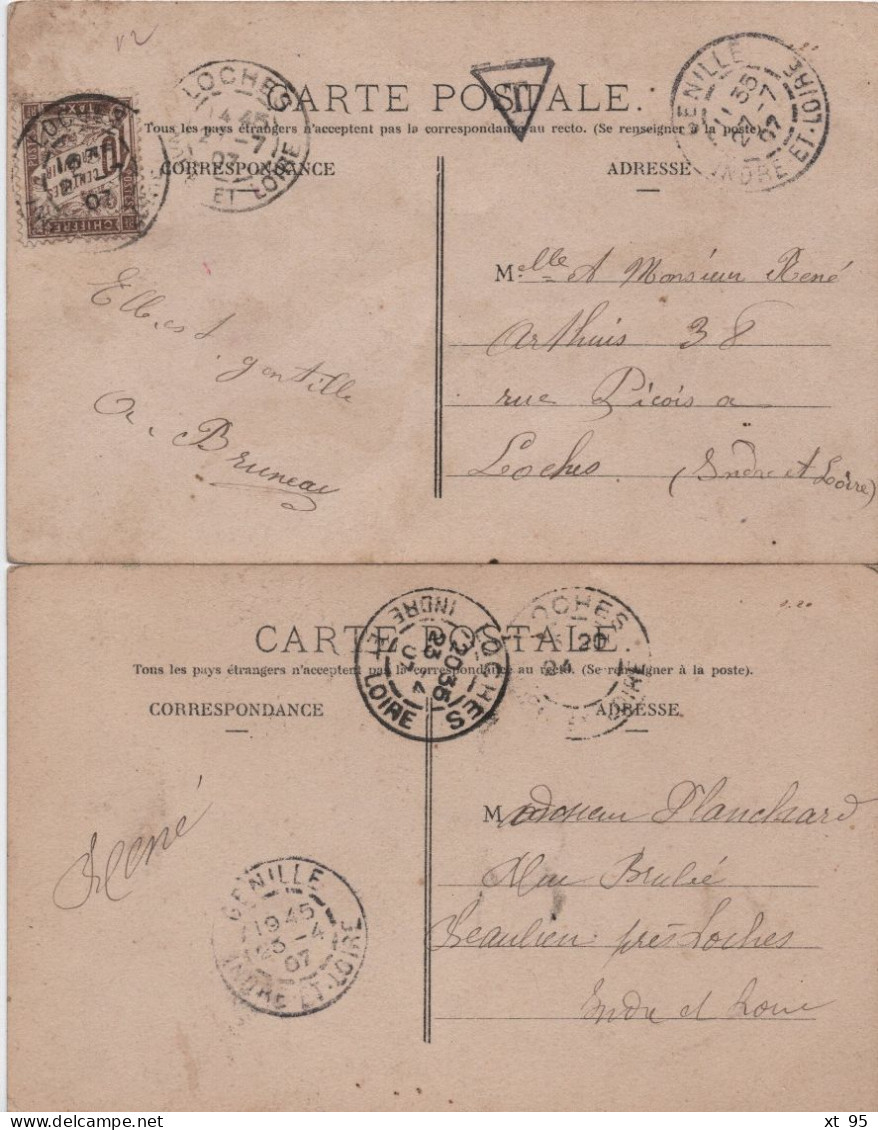 LOCHES
14 45
-7
07
ET LOIRE
T
GENILLE
11 35
27-7
07
INDRE-ET-LOIRE
LOCHES
07
CHIFFRE
CARTE POSTALE.
Tous les pays étrangers n'acceptent pas la correspondance au recto. (Se renseigner à la poste).
CORRESPONDANCE
ADRESSE
Melle et Monsieur René
Arthuis 38
rue Picois a
Loches (Indre et Loire)
gentille
Bruneau
CARTE POSTALE.
Tous les pays étrangers n'acceptent pas la correspondance au recto. (Se renseigner à la poste).
CORRESPONDANCE
ADRESSE
LOCHES
20 35
23 4
07
INDRE ET LOIRE
LOCHES
20
24
René
GENILLE
19 45
23-4
07
INDRE-ET-LOIRE
Planchard
Rue Brulée
Beaulieu près Loches
Indre et Loire
xt 95